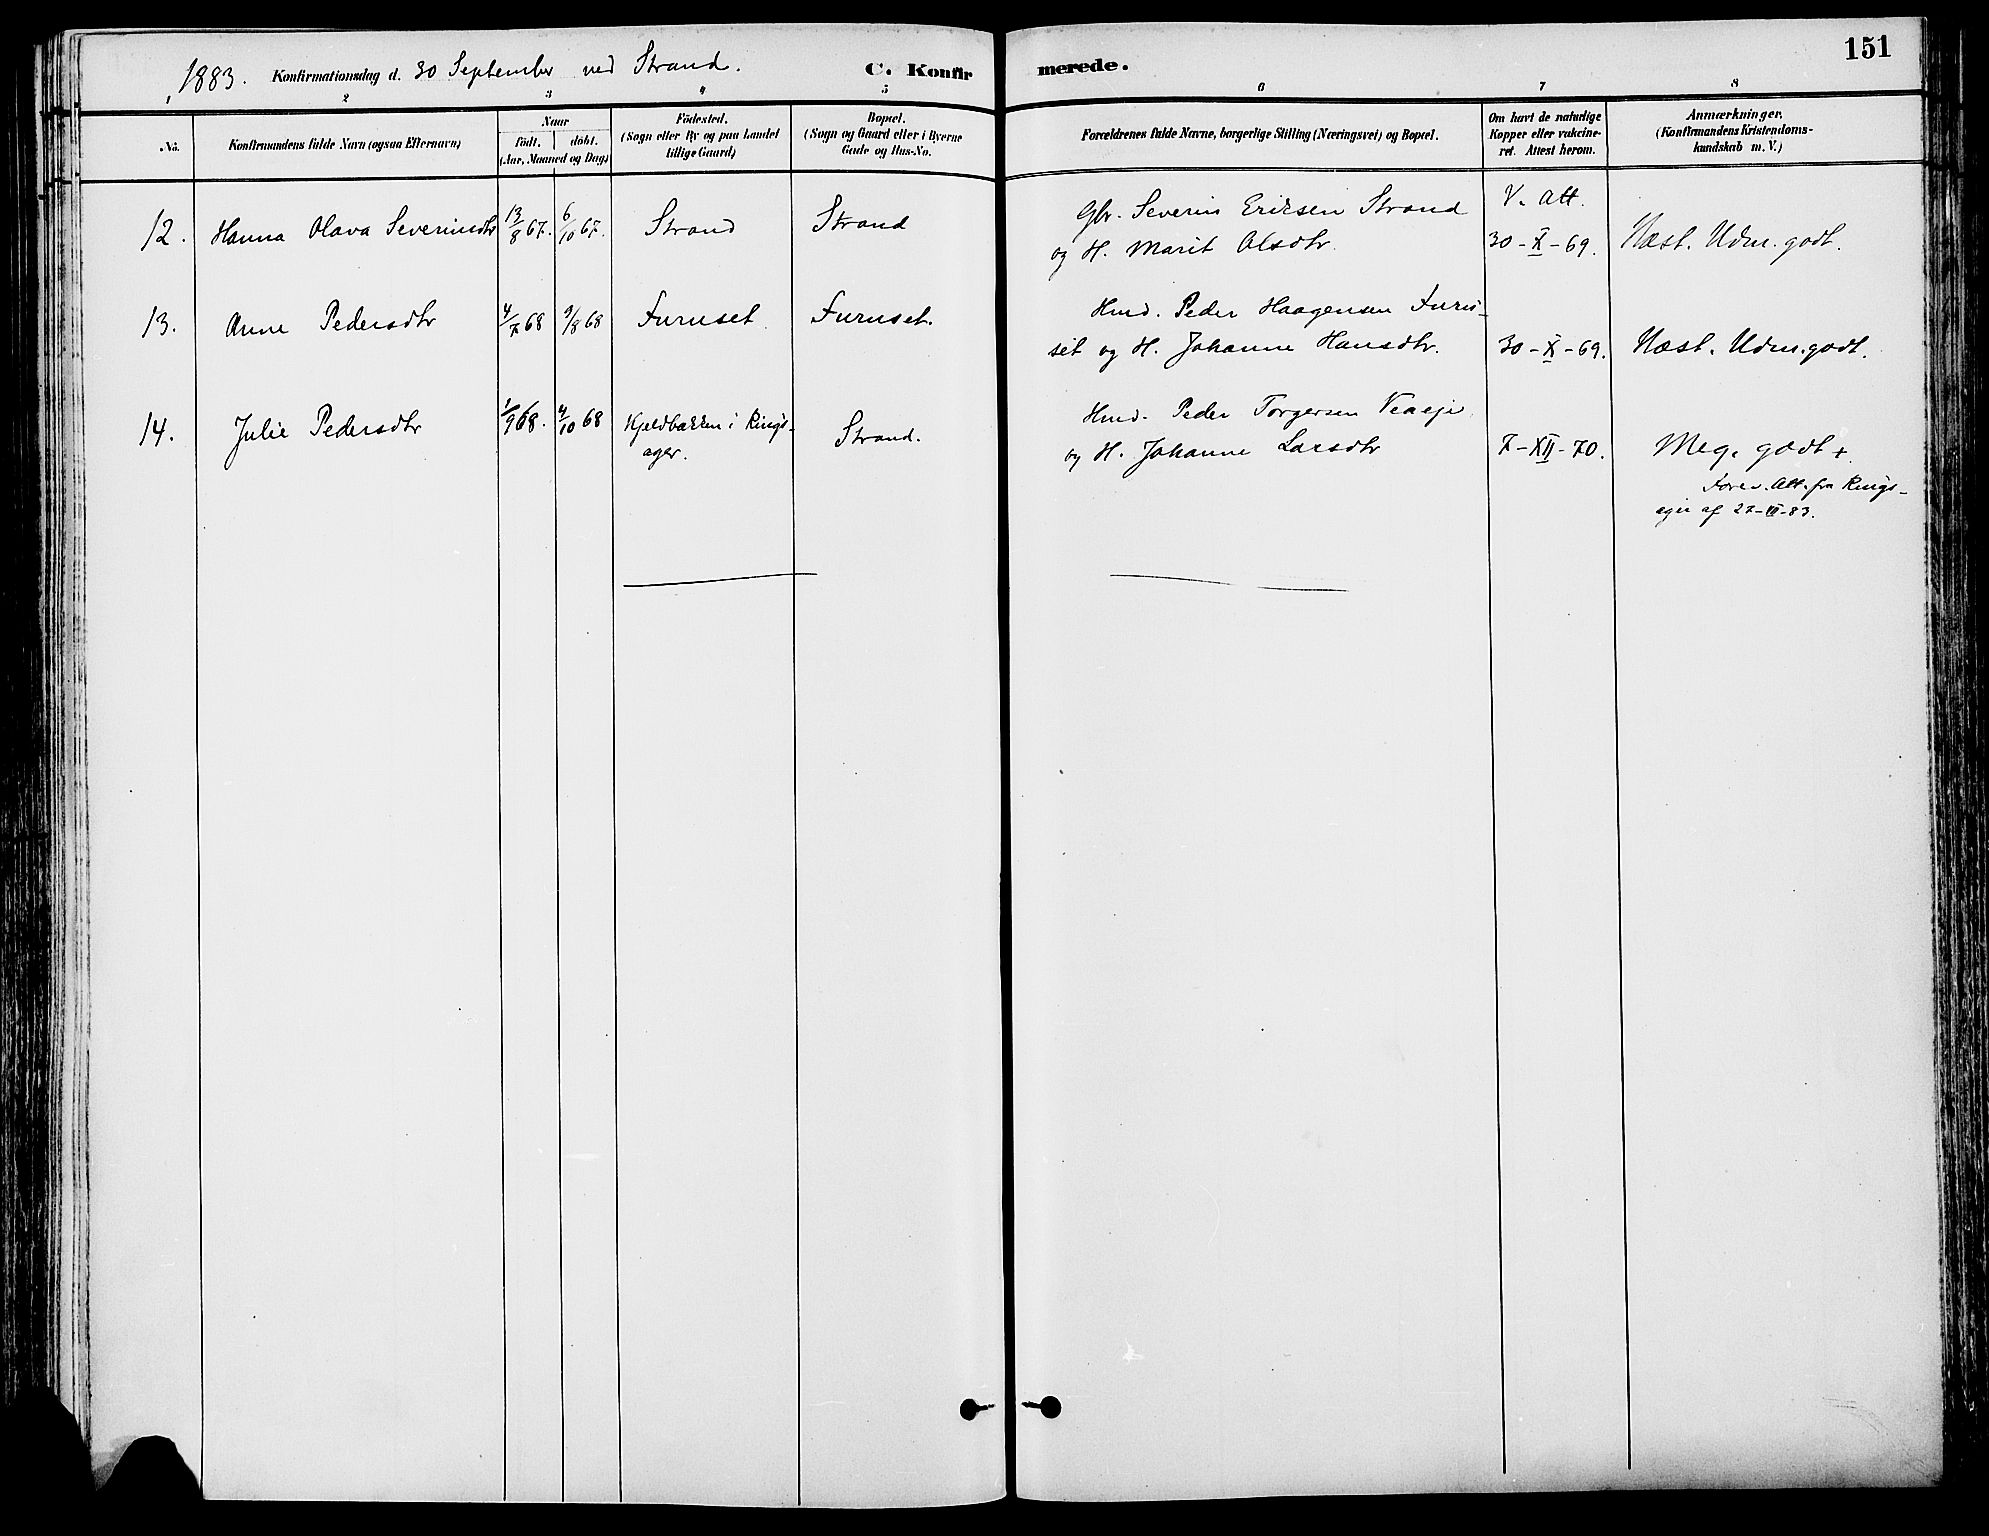 1883. Konfirmationsdag d. 30 September ved Strand. C. Konfir merede. 151
1 2 3 4 5 6 7 8
No.
Konfirmandens fulde Navn (ogsaa Efternavn)
Naar
født. døbt.
(Aar, Maaned og Dag)
Födested.
(Sogn eller By og paa Landet
tillige Gaard)
Bopæl.
(Sogn og Gaard eller i Byerne
Gade og Hus-No.
Forældrenes fulde Navne, borgerlige Stilling (Næringsvei) og Bopæl.
Om havt de naturlige
Kopper eller vakcine-
ret. Attest herom.
Anmærkninger.
(Konfirmandens Kristendoms-
kundskab m. V.)
12. Hanna Olava Severinsdtr 13/8 67. 6/10 67. Strand Strand Gbr. Severin Eriksen Strand V. Att.
og H. Marit Olsdtr. 30-X-69. Mæst. Udm. godt.
13. Anne Pedersdtr 4/7 68 9/8 68 Furuset Furuset. Hmd. Peder Haagensen Furu-
set og H. Johanne Hansdtr. 30-X-69. Mæst. Udm. godt.
14. Julie Pedersdtr 1/9 68. 4/10 68 Kjeldbakken i Rings-
ager. Strand. Hmd. Peder Torgersen
og H. Johanne Larsdtr 7-XII-70. Meg. godt +
Forev. Att. fra Rings-
ager af 27-